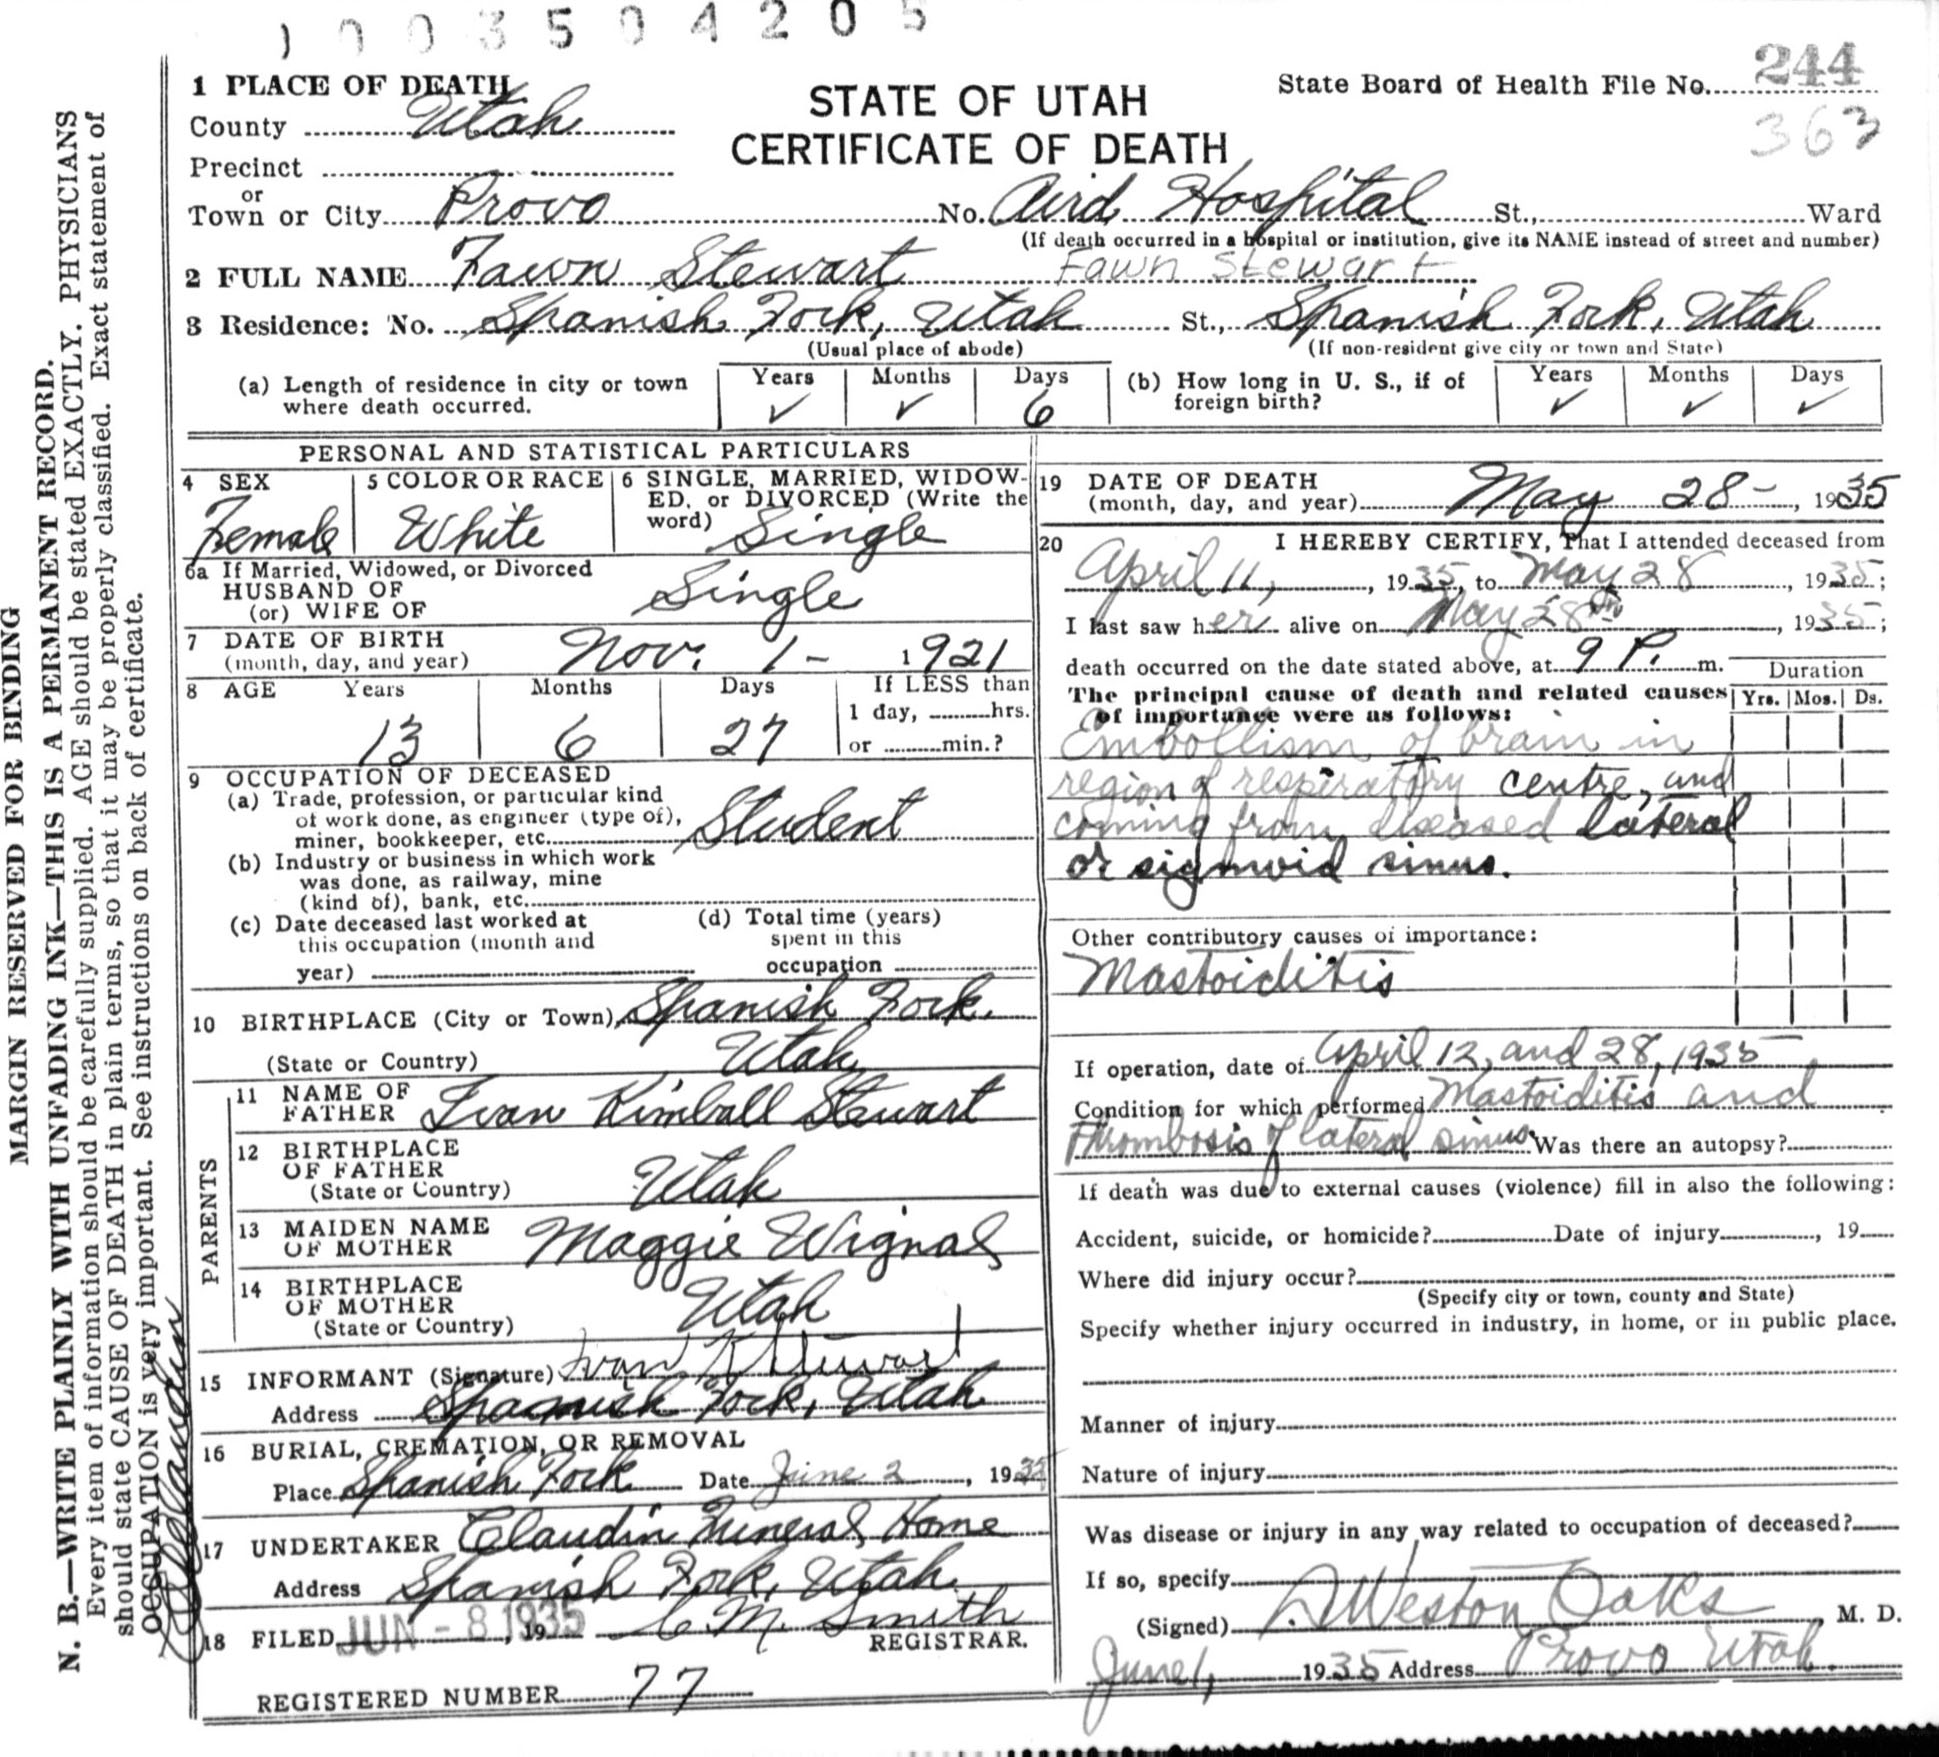 1 0 0 3 5 0 4 2 0 5
MARGIN RESERVED FOR BINDING
N. B.—WRITE PLAINLY WITH UNFADING INK—THIS IS A PERMANENT RECORD.
Every item of information should be carefully supplied. AGE should be stated EXACTLY. PHYSICIANS
should state CAUSE OF DEATH in plain terms, so that it may be properly classified. Exact statement of
OCCUPATION is very important. See instructions on back of certificate.
1 PLACE OF DEATH
County Utah
Precinct
or
Town or City Provo No. Aird Hospital St., Ward
(If death occurred in a hospital or institution, give its NAME instead of street and number)
STATE OF UTAH
CERTIFICATE OF DEATH
State Board of Health File No. 244
363
2 FULL NAME Fawn Stewart Fawn Stewart
3 Residence: No. Spanish Fork, Utah St., Spanish Fork, Utah
(Usual place of abode) (If non-resident give city or town and State)
(a) Length of residence in city or town where death occurred. Years ✓ Months ✓ Days 6
(b) How long in U. S., if of foreign birth? Years ✓ Months ✓ Days ✓
PERSONAL AND STATISTICAL PARTICULARS
4 SEX Female
5 COLOR OR RACE White
6 SINGLE, MARRIED, WIDOWED, or DIVORCED (Write the word) Single
6a If Married, Widowed, or Divorced
HUSBAND OF
(or) WIFE OF Single
7 DATE OF BIRTH
(month, day, and year) Nov. 1- 1921
8 AGE Years 13 Months 6 Days 27
If LESS than
1 day, hrs.
or min.?
9 OCCUPATION OF DECEASED
(a) Trade, profession, or particular kind
of work done, as engineer (type of),
miner, bookkeeper, etc. Student
(b) Industry or business in which work
was done, as railway, mine
(kind of), bank, etc.
(c) Date deceased last worked at
this occupation (month and
year)
(d) Total time (years)
spent in this
occupation
10 BIRTHPLACE (City or Town) Spanish Fork.
(State or Country) Utah
PARENTS
11 NAME OF
FATHER Ivan Kimball Stewart
12 BIRTHPLACE
OF FATHER
(State or Country) Utah
13 MAIDEN NAME
OF MOTHER Maggie Wignal
14 BIRTHPLACE
OF MOTHER
(State or Country) Utah
15 INFORMANT (Signature) Ivan K Stewart
Address Spanish Fork, Utah
16 BURIAL, CREMATION, OR REMOVAL
Place Spanish Fork Date June 2, 1935
17 UNDERTAKER Claudin Funeral Home
Address Spanish Fork, Utah.
18 FILED JUN - 8 1935, 19 C. M. Smith
REGISTRAR.
REGISTERED NUMBER 77
19 DATE OF DEATH
(month, day, and year) May 28 -, 1935
20 I HEREBY CERTIFY, That I attended deceased from
April 11, 1935, to May 28, 1935;
I last saw her alive on May 28th, 1935;
death occurred on the date stated above, at 9 P. m.
Duration
The principal cause of death and related causes Yrs. Mos. Ds.
of importance were as follows:
Embollism of brain in
region of respiratory centre, and
coming from diseased lateral
or sigmoid sinus.
Other contributory causes of importance:
Mastoiditis
If operation, date of April 12, and 28, 1935
Condition for which performed Mastoiditis and
Thrombosis of lateral sinus. Was there an autopsy?
If death was due to external causes (violence) fill in also the following:
Accident, suicide, or homicide? Date of injury, 19
Where did injury occur?
(Specify city or town, county and State)
Specify whether injury occurred in industry, in home, or in public place.
Manner of injury
Nature of injury
Was disease or injury in any way related to occupation of deceased?
If so, specify
(Signed) Weston Oaks, M. D.
June 1, 1935 Address Provo Utah.